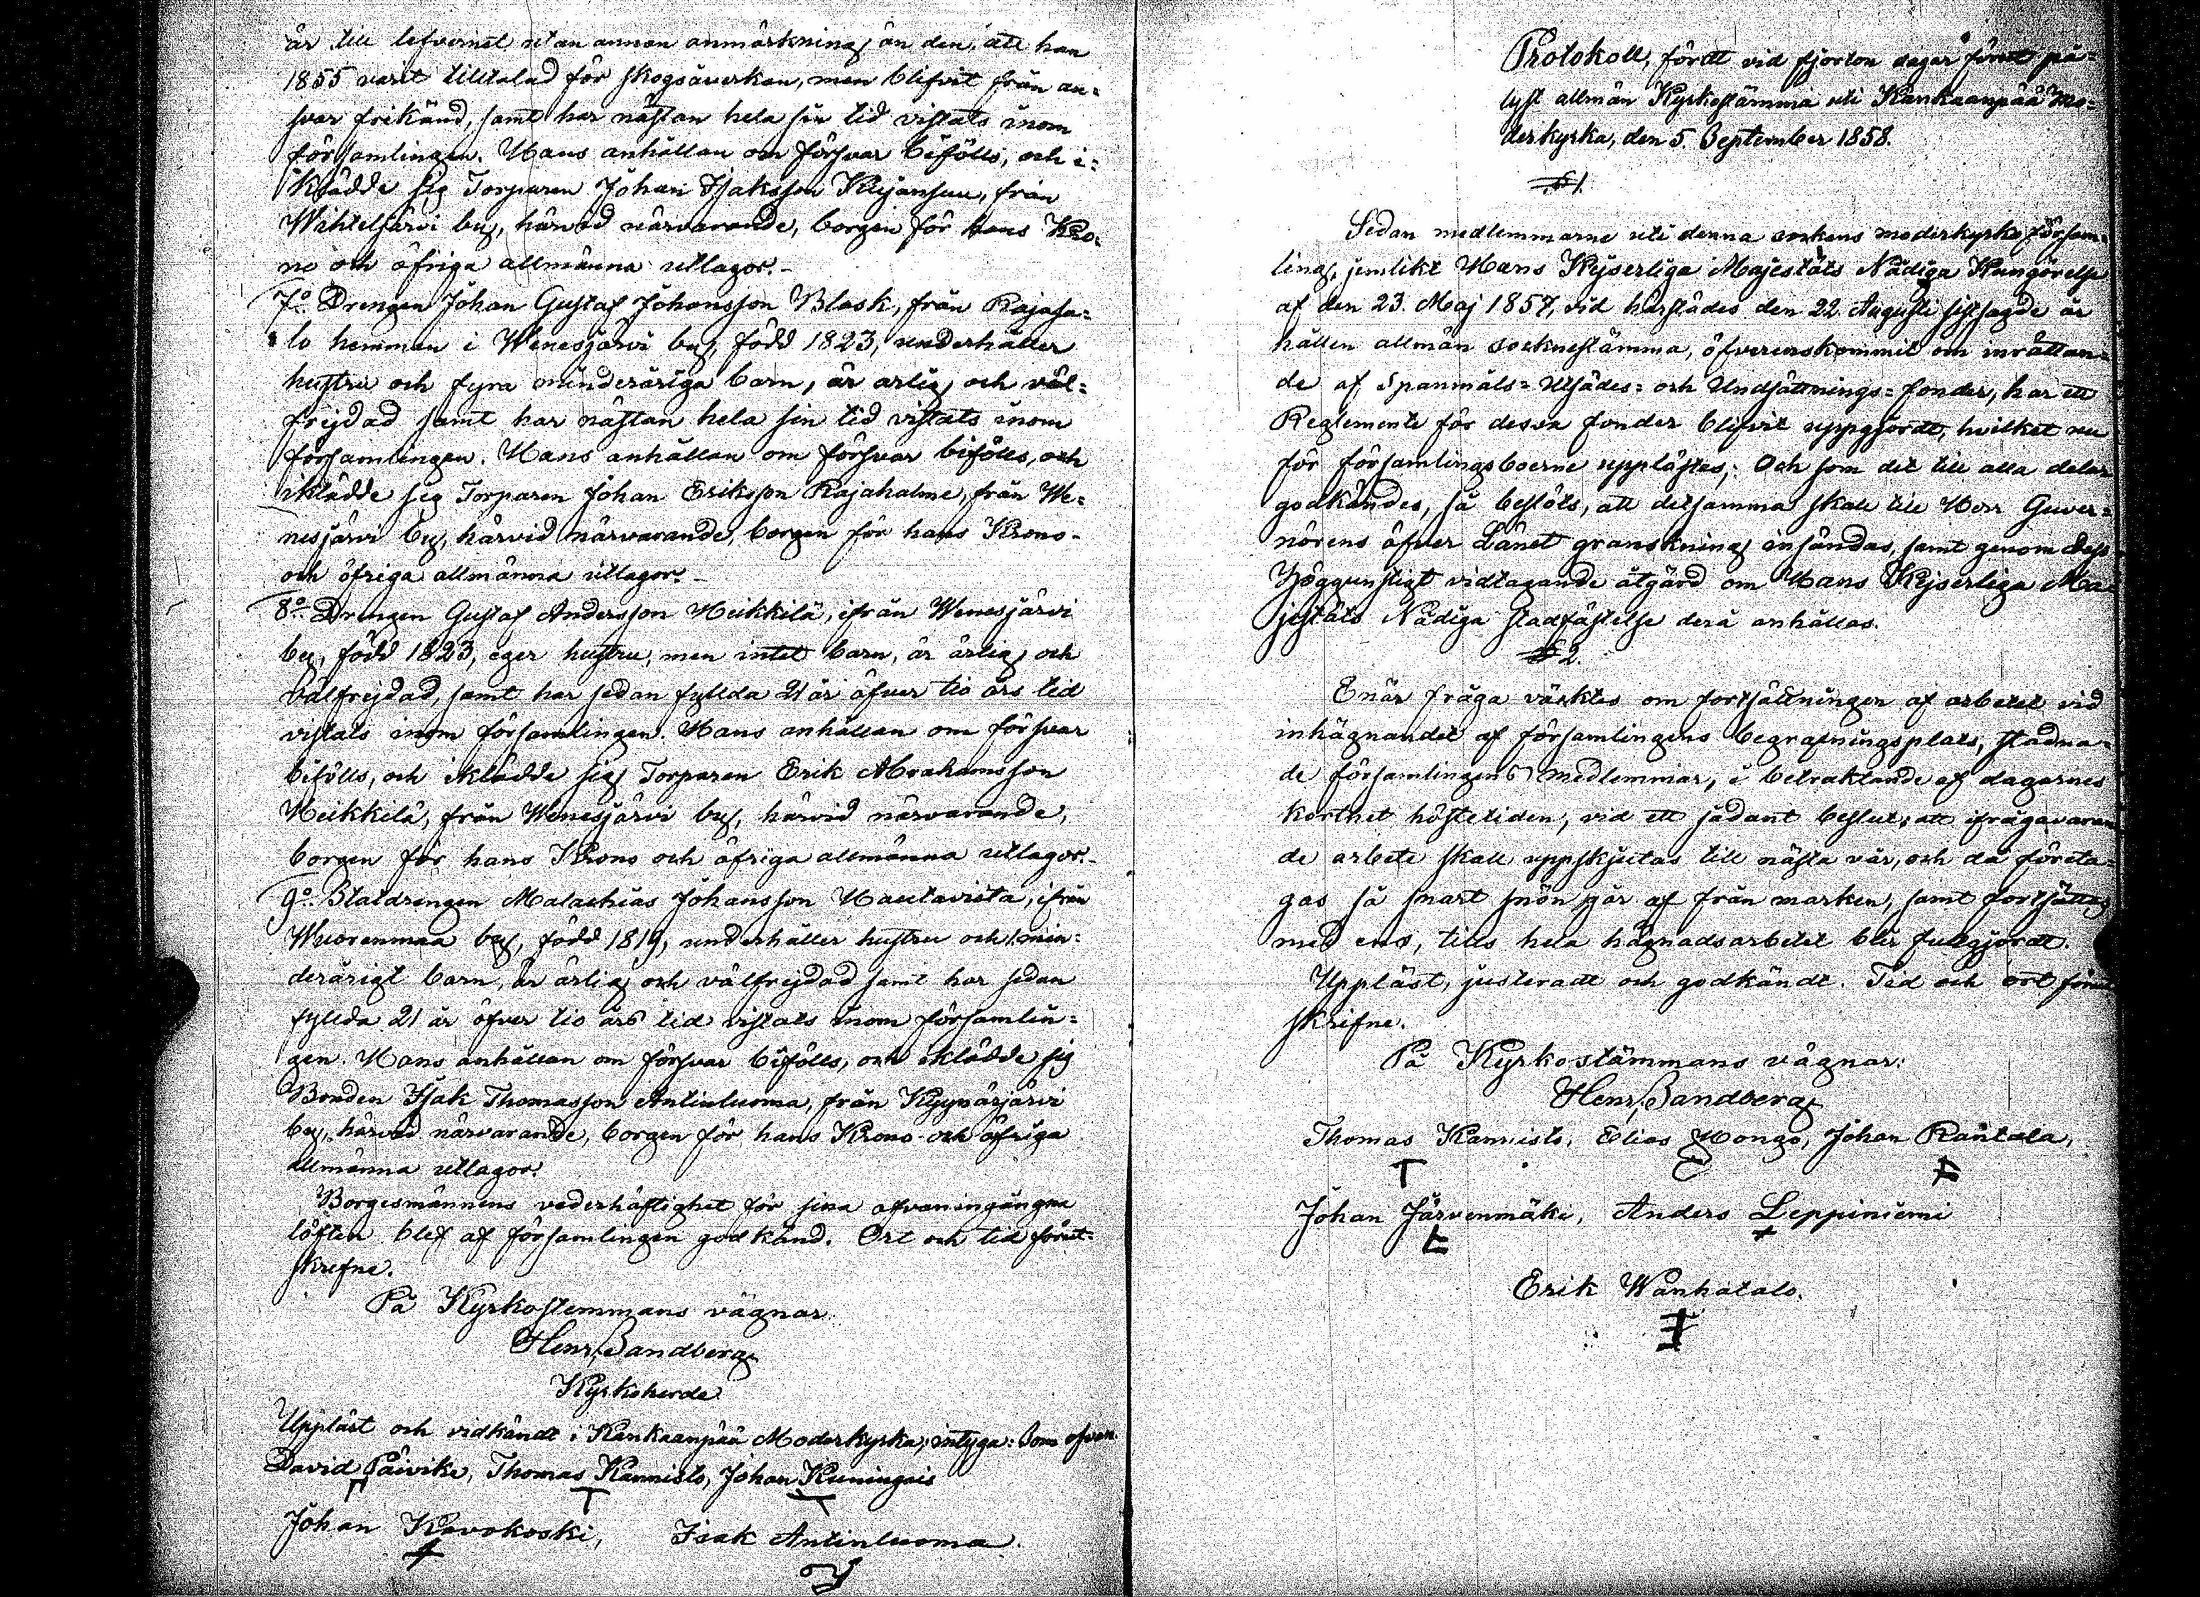 är till lefvernet utan annan anmärkning än den, att han
1855 varit tilltalad för skogsåverkan, men blifvit från an-
svar frikänd, samt har nästan hela sin tid vistats inom
församlingen. Hans anhållan om försvar bifölls, och i-
klädde sig Torparen Johan Isaksson Kujansuu, från
Wihteljärvi by, härvid närvarande, borgen för hans Kro-
no och öfriga allmänna utlagor.-
7:o Drengen Johan Gustaf Johansson Blask, från Rajasa-
lo hemman i Wenesjärvi by, född 1823, underhåller
hustru och fyra minderåriga barn, är ärlig och väl-
frejdad samt har nästan hela sin tid vistats inom
församlingen. Hans anhållan om försvar bifölls, och
iklädde sig Torparen Johan Eriksson Rajahalme, från We-
nesjärvi by, härvid närvarande, borgen för hans Krono-
och öfriga allmänna utlagor.-
8:o Drengen Gustaf Andersson Heikkilä, ifrån Wenesjärvi
by, född 1823, eger hustru, men intet barn, är ärlig och
välfrejdad, samt har sedan fyllda 21 år öfver tio års tid
vistats inom församlingen. Hans anhållan om försvar
bifölls, och iklädde sig Torparen Erik Abrahamsson
Heikkilä, från Wenesjärvi by, härvid närvarande,
borgen för hans Krono och öfriga allmänna utlagor.-
9:o Statdrengen Malachias Johansson Hautavista, ifrån
Wuorenmaa by, född 1819, underhåller hustru och 1 min-
derårigt barn, är ärlig och välfrejdad samt har sedan
fyllda 21 år öfver tio års tid vistats inom församlin-
gen. Hans anhållan om försvar bifölls, och iklädde sig
Bonden Isak Thomasson Antinluoma, från Kyynärjärvi
by, härvid närvarande, borgen för hans Krono- och öfriga
allmänna utlagor.
Borgesmännens vederhäftighet för sina ofvaningångna
löften blef af församlingen godkänd. Ort och tid förut-
skrefne.
På Kyrkostemmans vägnar
Henr. Sandberg
Kyrkoherde
Uppläst och vidkändt i Kankaanpää Moderkyrka, intyga: Som ofvan
David Päivike, Thomas Kannisto, Johan Kuningais
Johan Kovokoski, Isak Antinluoma.
Protokoll, fördt vid fjorton dagar förut på-
lyst allmän Kyrkostämma uti Kankaanpää Mo-
derkyrka, den 5 September 1858.
§ 1.
Sedan medlemmarne uti denna sockens moderkyrko försam-
ling, jemlikt Hans Kejserliga Majestäts Nådiga Kungörelse
af den 23. Maj 1857, vid härstädes den 22 Augusti sistsagde år
hållen allmän socknestämma, öfverenskommit om inrättan-
de af Spanmåls- Utsädes- och Undsättnings-fonder, har ett
Reglemente för dessa fonder blifvit uppgjordt, hvilket nu
för församlingsboerne upplästes; Och som det till alla delar
godkändes, så beslöts, att detsamma skall till Herr Guver-
nörens öfver Länet granskning insändas, samt genom dess
Höggunstigt vidtagande åtgärd om Hans Kejserliga Ma-
jestäts Nådiga stadfästelse derå anhållas.
§ 2.
Enär fråga väcktes om fortsättningen af arbetet vid
inhägnandet af församlingens begrafningsplats, stadna-
de församlingens medlemmar, i betraktande af dagarnes
korthet hösttiden, vid ett sådant beslut, att ifrågavaran-
de arbete skall uppskjutas till nästa vår, och då företa-
gas så snart snön går af från marken, samt fortsättas
med ens, tills hela hägnadsarbetet blir fullgjordt.
Uppläst, justeradt och godkändt. Tid och ort förut
skrifne.
På Kyrkostämmans vägnar:
Henr. Sandberg
Thomas Kannisto, Elias Hongo, Johan Rantala,
Johan Järvenmäki, Anders Leppiniemi
Erik Wanhatalo.